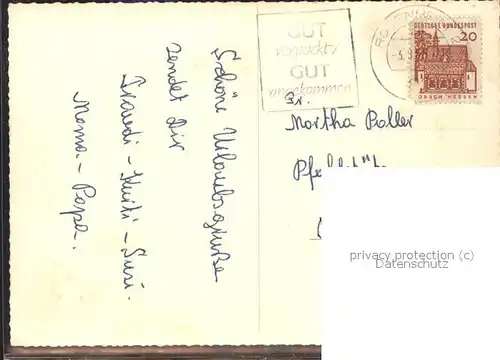 Schöne Urlaubsgrüße
sendet Dir
Traudi - Heiti - Susi.
Mama. - Papa.
GUT
verpackt/
GUT
angekommen
DEUTSCHE BUNDESPOST
20
LORSCH HESSEN
Fr.
Martha Poller
privacy protection (c)
Datenschutz